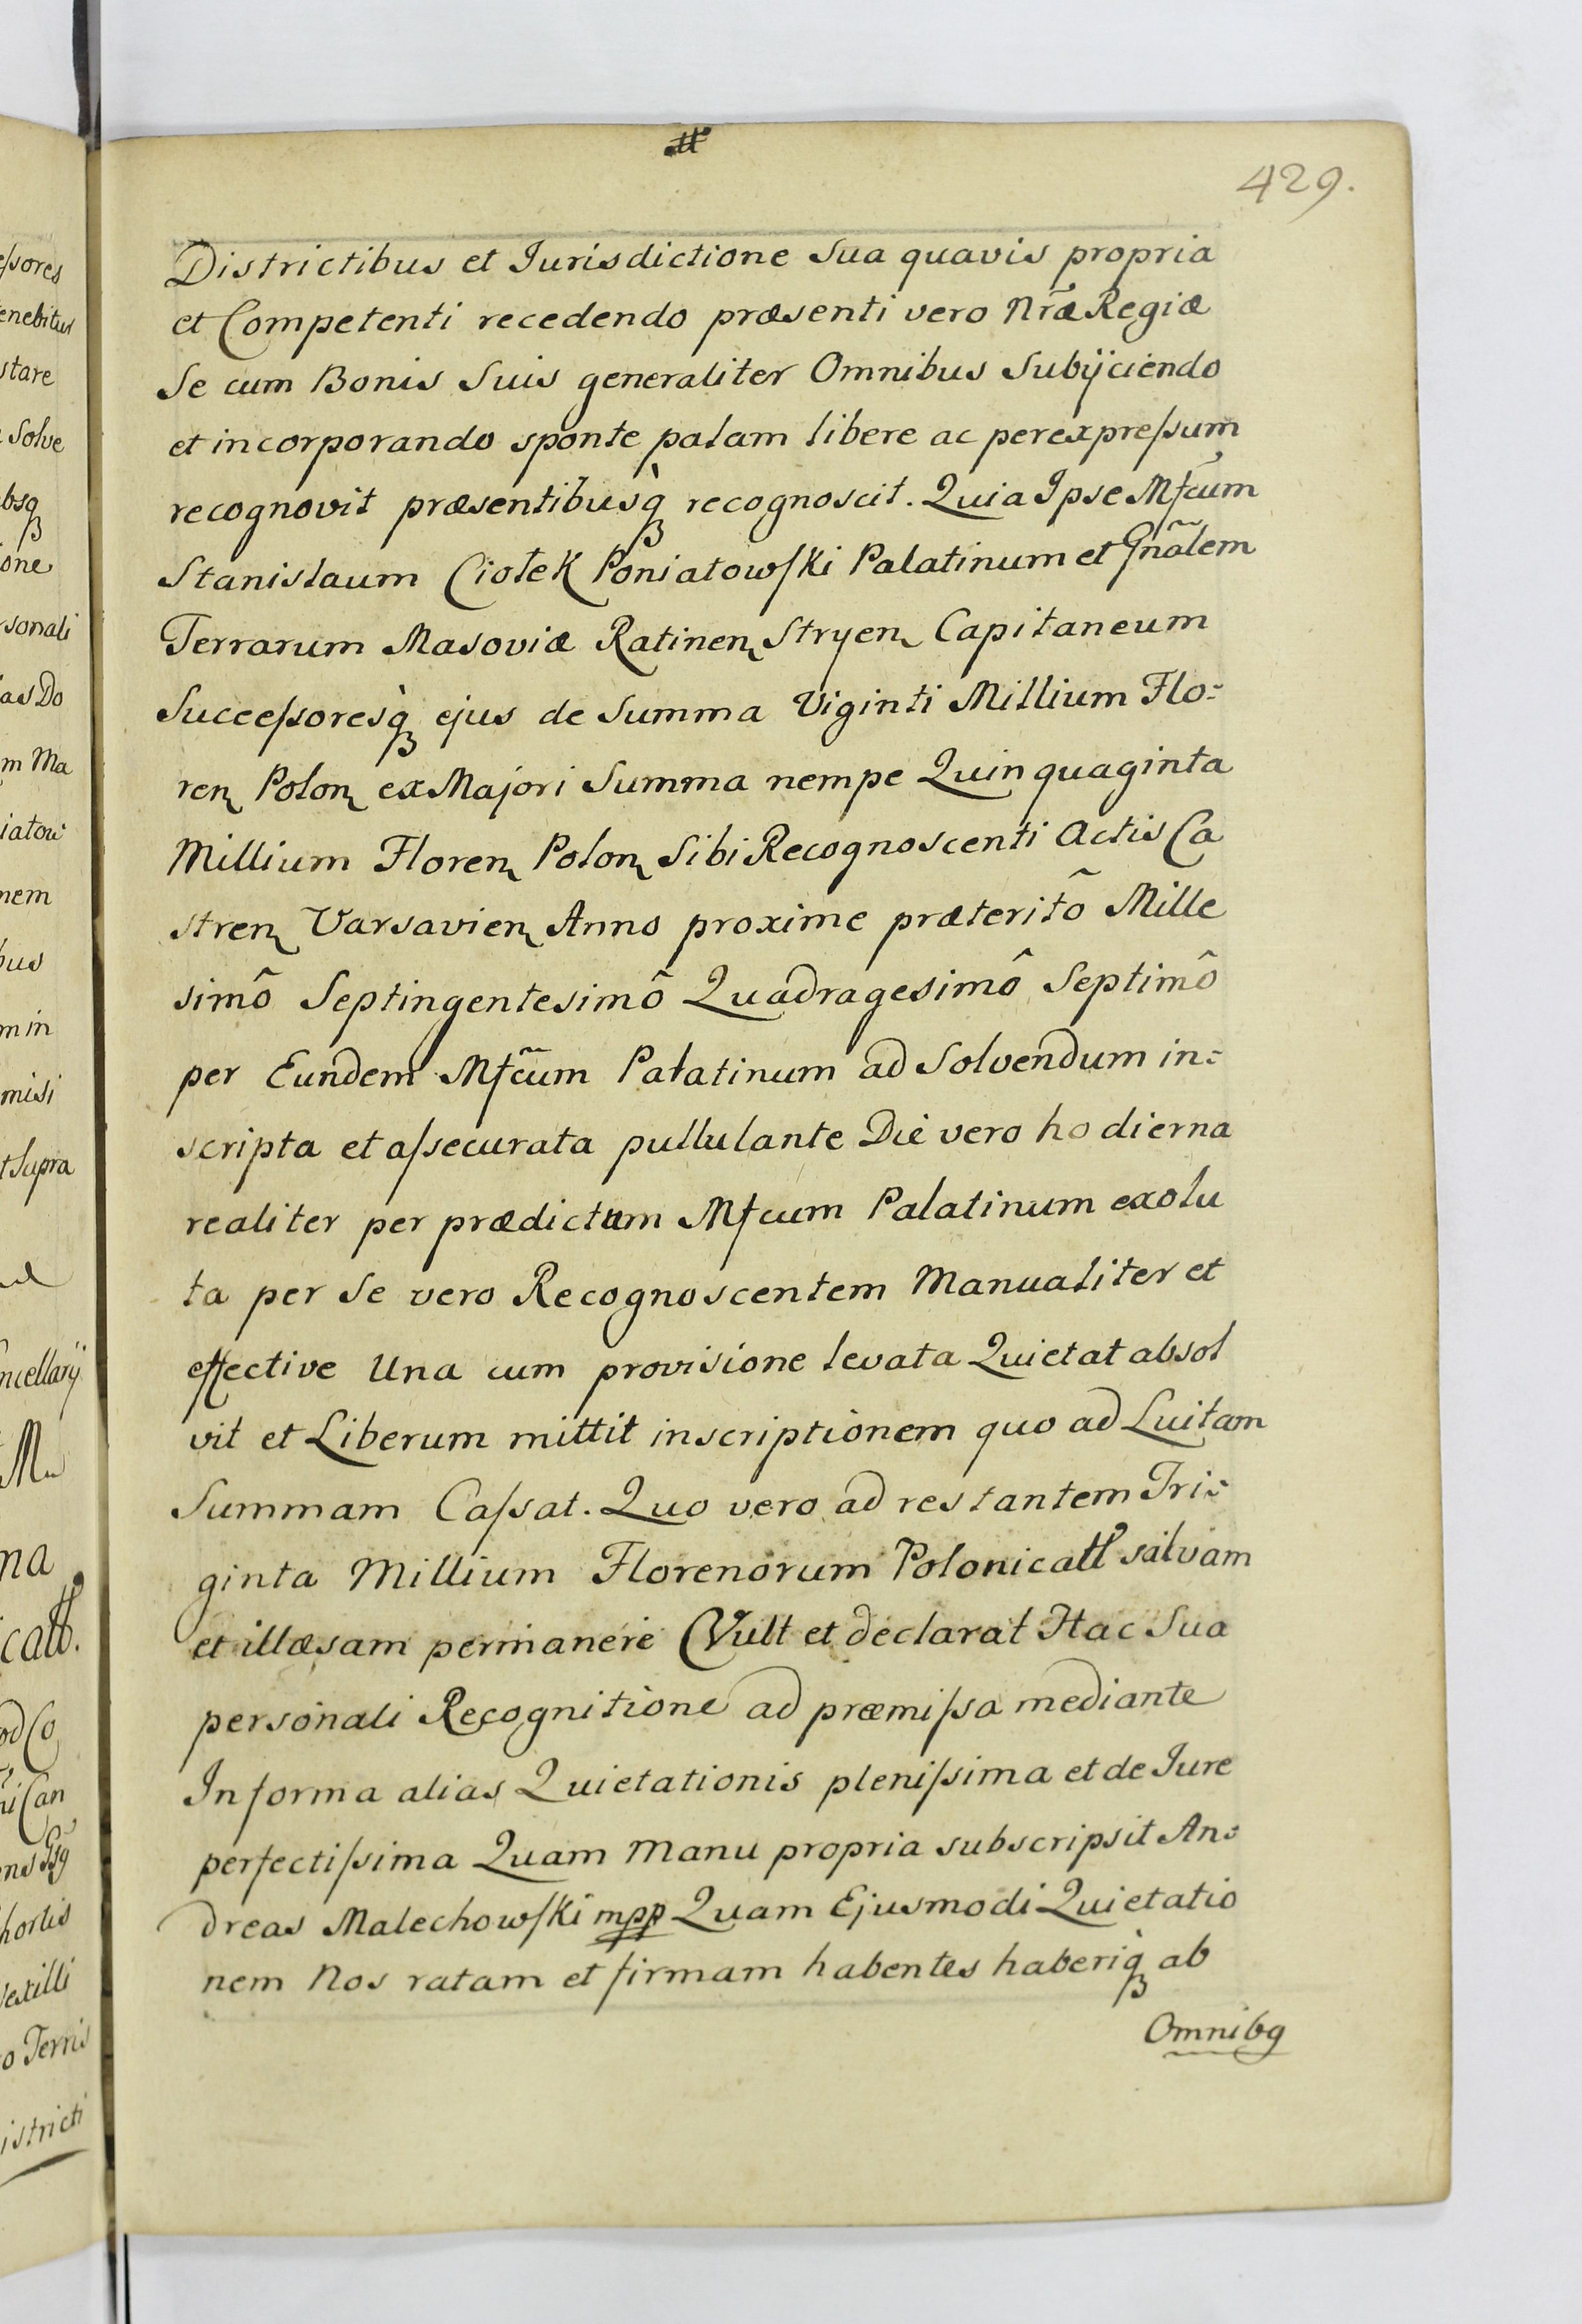 429.
Districtibus et Jurisdictione Sua quavis propria
et Competenti recedendo præsenti vero Nr̃æ Regiæ
Se cum Bonis Suis generaliter Omnibus Subÿciendo
et incorporando sponte palam libere ac perexpreſsum
recognovit præsentibusq̀ recognoscit. Quia Ipse Mſc̃um
Stanislaum Ciołek Poniatowſki Palatinum et Gnãlem
Terrarum Masoviæ Ratinen Stryen Capitaneum
Succeſsoresq̀ ejus de Summa Viginti Millium Flo=
ren Polon ex Majori Summa nempe Quinquaginta
Millium Floren Polon Sibi Recognoscenti Actis Ca
stren Varsavien Anno proxime præteritô Mille
simô Septingentesimô Quadragesimô Septimô
per Eundem Mſc̃um Palatinum ad Solvendum in=
scripta et aſsecurata pullulante Die vero hodierna
realiter per prædictum Mſcum Palatinum exolu
ta per Se vero Recognoscentem Manualiter et
effective Una cum provisione levata Quietat absol
vit et Liberum mittit inscriptionem quo ad Luitam
Summam Caſsat. Quo vero ad restantem Tri=
ginta Millium Florenorum Polonicall salvam
et illæsam permanere Vult et declarat Hac Sua
personali Recognitione ad præmiſsa mediante
In forma alias Quietationis pleniſsima et de Jure
perfectiſsima Quam Manu propria subscripsit An=
dreas Malechowſki mpp Quam Ejusmodi Quietatio
nem Nos ratam et firmam habentes haberiq̀ ab
Omnibg